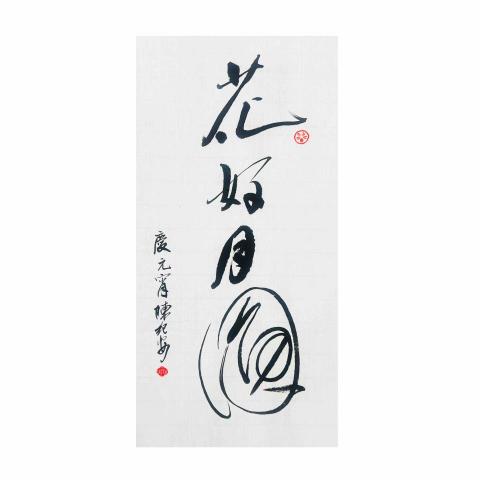 花好月圓
慶元宵陳紀安